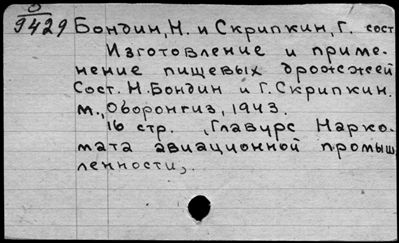 О
9429 Бондин, Н. и Скрипкин, Г. сост
Изготовление и приме-
нение пищевых дрожжей
Сост. Н. Бондин и Г. Скрипкин.
м., Оборонгиз, 1943.
16 стр. (Главурс Нарко-
мата авиационной промыш
ленности).